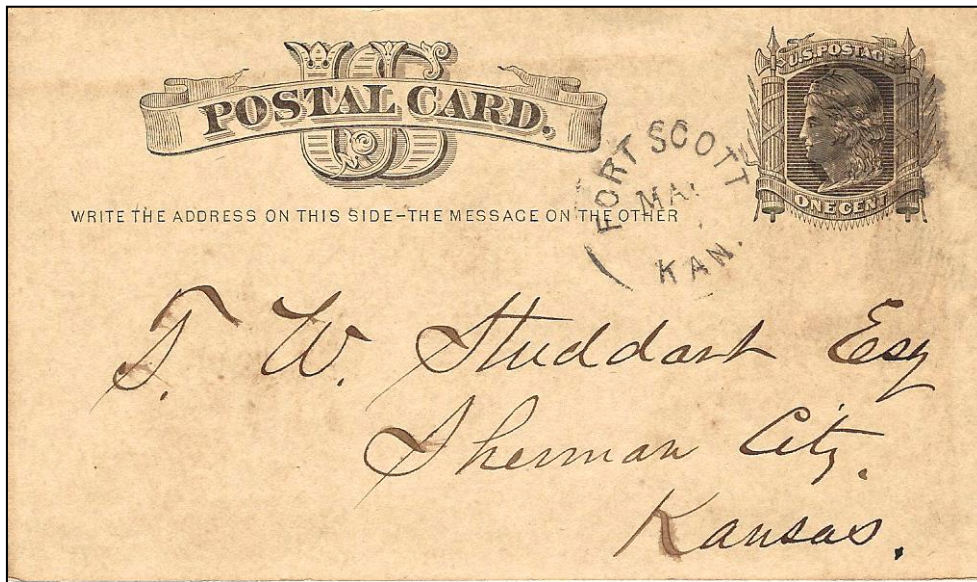 US
POSTAL CARD.
U.S. POSTAGE
ONE CENT
WRITE THE ADDRESS ON THIS SIDE-THE MESSAGE ON THE OTHER
FORT SCOTT
KAN.
W. Studdart Esq
Sherman City.
Kansas.